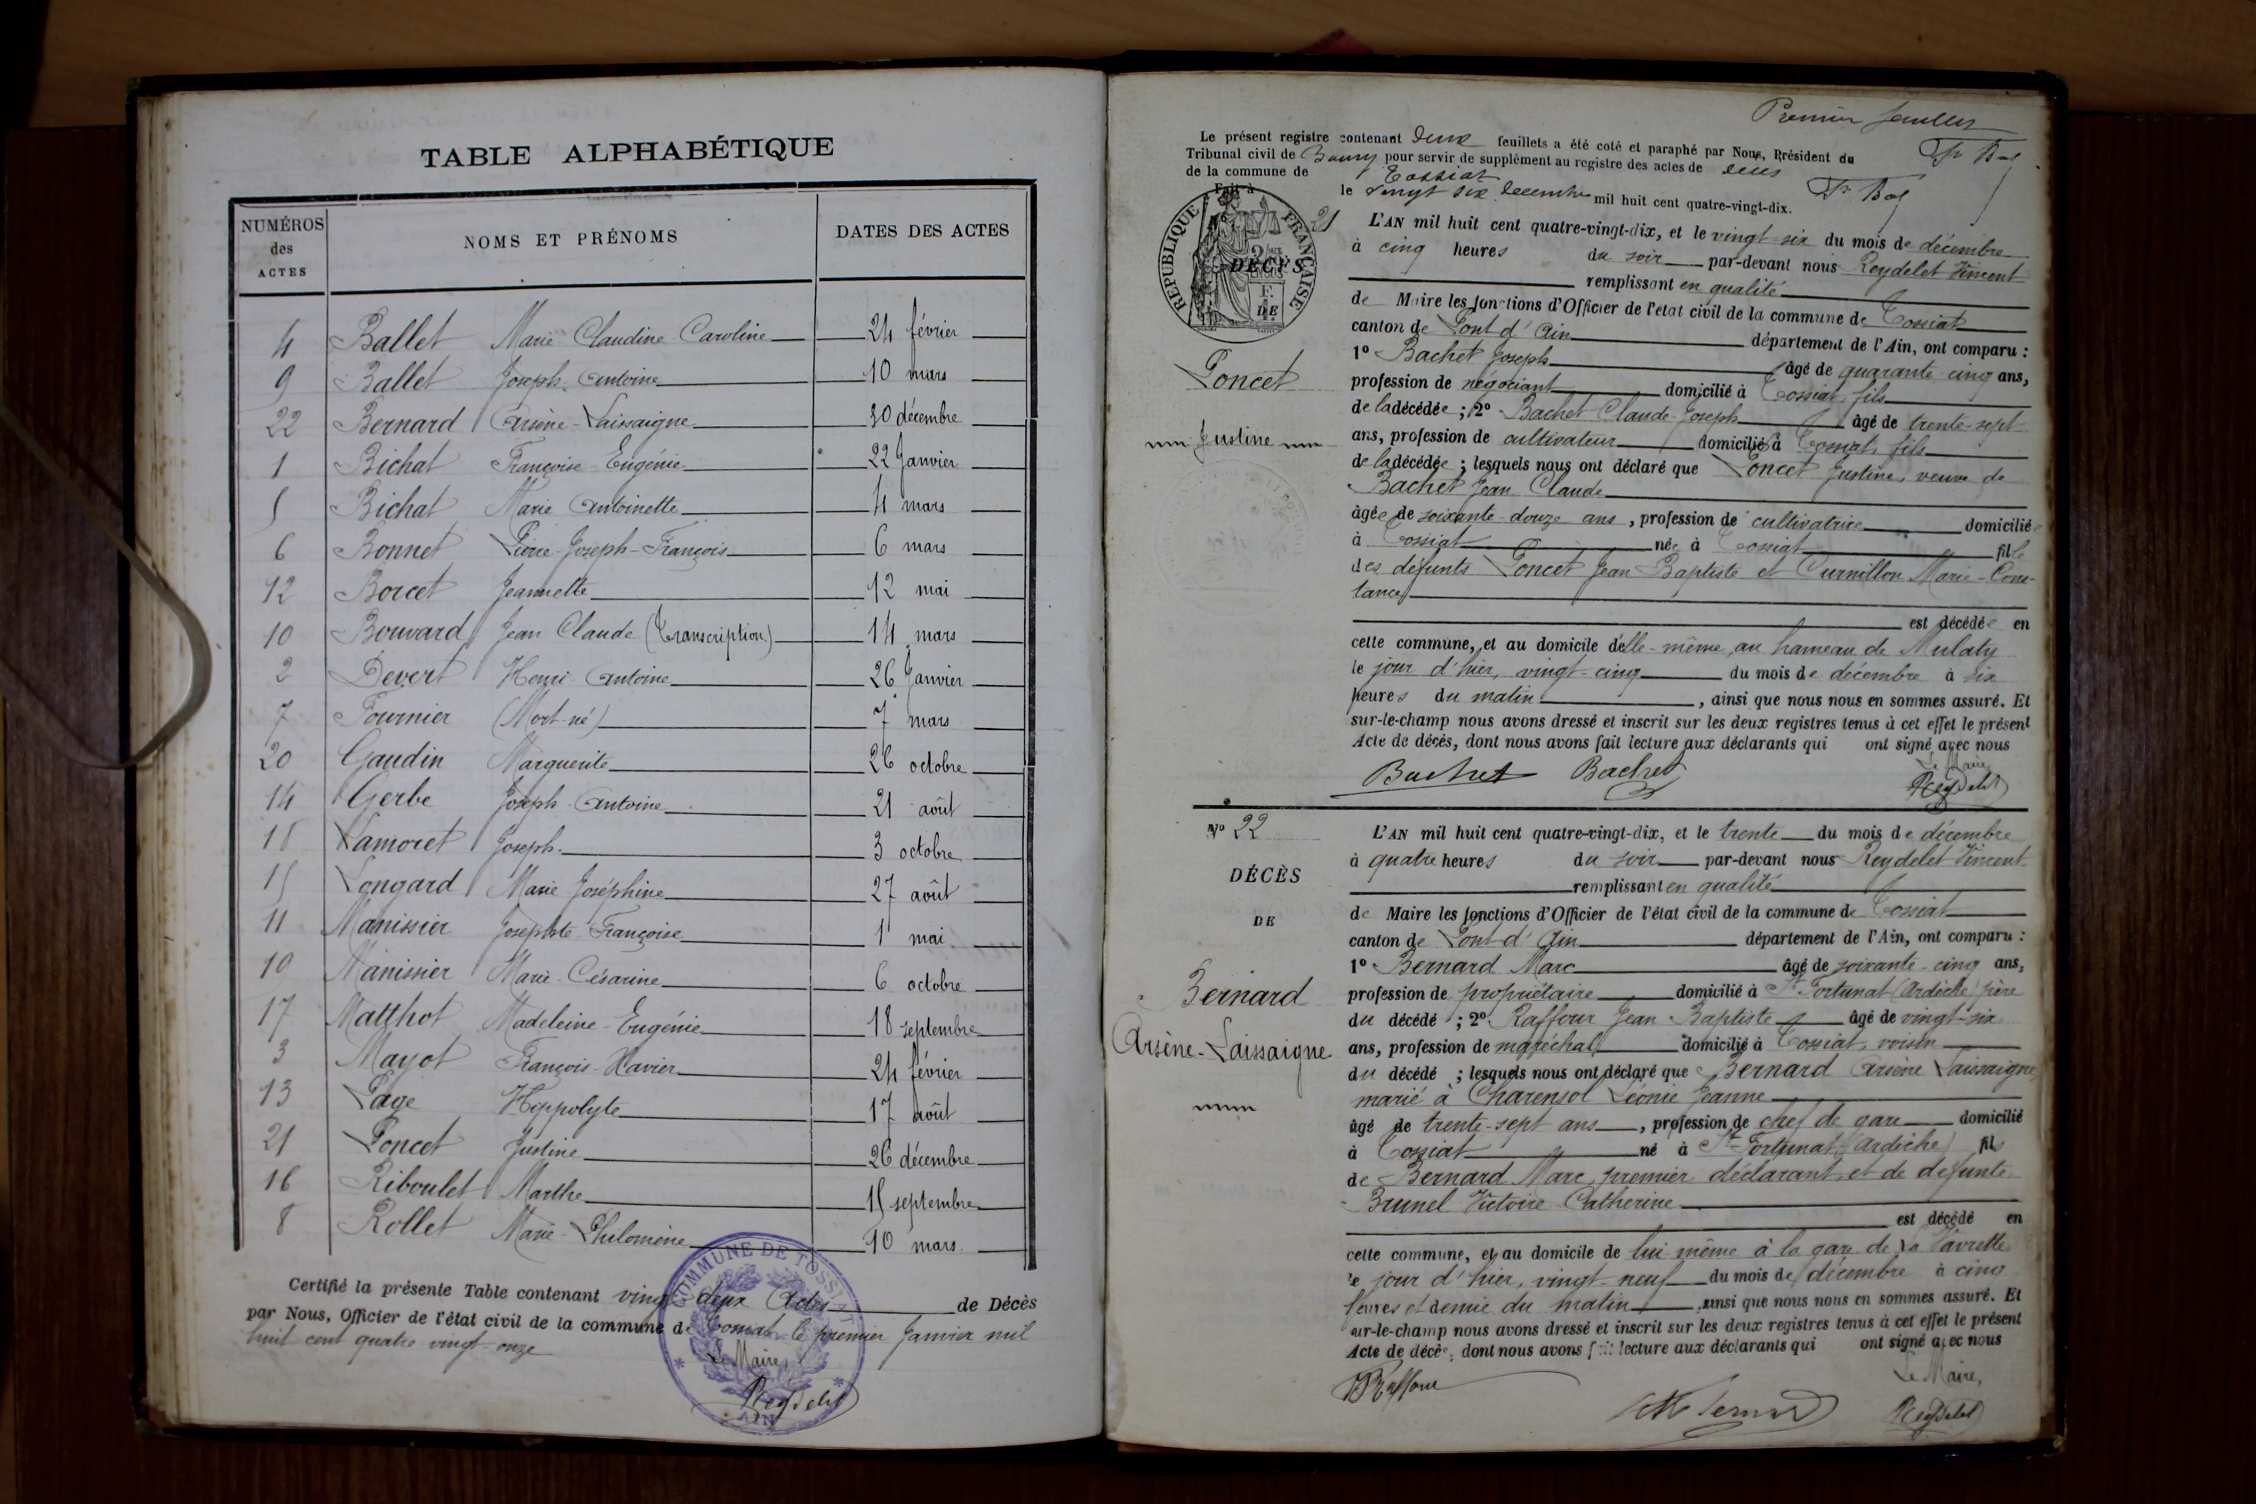 TABLE ALPHABÉTIQUE
NUMÉROS des ACTES NOMS ET PRÉNOMS DATES DES ACTES
4 Ballet Marie Claudine Caroline 24 février
9 Ballet Joseph Antoine 10 mars
22 Bernard Arsène-Laissaigne 30 décembre
1 Bichat Françoise-Eugénie 22 Janvier
5 Bichat Marie Antoinette 4 mars
6 Bonnet Pierre-Joseph-François 6 mars
12 Borcet Jeannette 12 mai
10 Bouvard Jean Claude (Transcription) 14 mars
2 Devert Henri Antoine 26 Janvier
7 Fournier (Mort-né) 7 mars
20 Gaudin Marguerite 26 octobre
14 Gerbe Joseph-Antoine 21 août
18 Lamoret Joseph 3 octobre
15 Longard Marie Joséphine 27 août
11 Manissier Josephte Françoise 1 mai
19 Manissier Marie-Césarine 6 octobre
17 Matthot Madeleine-Eugénie 18 septembre
3 Mayot François-Xavier 24 février
13 Page Hippolyte 17 août
21 Poncet Justine 26 décembre
16 Riboulet Marthe 15 septembre
8 Rollet Marie-Philomène 10 mars
Certifié la présente Table contenant vingt deux Actes de Décès
par Nous, Officier de l'état civil de la commune de Tossiat le premier Janvier mil
huit cent quatre vingt onze
Le Maire,
Reydelet
COMMUNE DE TOSSIAT
AIN
Premier feuillet
Le présent registre contenant deux feuillets a été coté et paraphé par Nous, Président du
Tribunal civil de Bourg pour servir de supplément au registre des actes de décès
de la commune de Tossiat
Fait à le vingt six décembre mil huit cent quatre-vingt-dix.
RÉPUBLIQUE FRANÇAISE
N° 21
DÉCÈS
DE
Poncet
Justine
L'AN mil huit cent quatre-vingt-dix, et le vingt-six du mois de décembre
à cinq heures du soir par-devant nous Reydelet Vincent
remplissant en qualité
de Maire les fonctions d'Officier de l'état civil de la commune de Tossiat
canton de Pont d'Ain département de l'Ain, ont comparu :
1° Bachet Joseph âgé de quarante cinq ans,
profession de négociant domicilié à Tossiat, fils
de la décédée ; 2° Bachet Claude-Joseph âgé de trente-sept
ans, profession de cultivateur domicilié à Tossiat, fils
de la décédée ; lesquels nous ont déclaré que Poncet Justine, veuve de
Bachet Jean Claude
âgée de soixante-douze ans, profession de cultivatrice domiciliée
à Tossiat née à Tossiat fille
des défunts Poncet Jean Baptiste et Curnillon Marie-Cons-
tance
est décédée en
cette commune, et au domicile d'elle-même au hameau de Mulaty
le jour d'hier, vingt-cinq du mois de décembre à six
heures du matin, ainsi que nous nous en sommes assuré. Et
sur-le-champ nous avons dressé et inscrit sur les deux registres tenus à cet effet le présent
Acte de décès, dont nous avons fait lecture aux déclarants qui ont signé avec nous
Le Maire
Bachet Bachet Reydelet
N° 22
DÉCÈS
DE
Bernard
Arsène-Laissaigne
L'AN mil huit cent quatre-vingt-dix, et le trente du mois de décembre
à quatre heures du soir par-devant nous Reydelet Vincent
remplissant en qualité
de Maire les fonctions d'Officier de l'état civil de la commune de Tossiat
canton de Pont d'Ain département de l'Ain, ont comparu :
1° Bernard Marc âgé de soixante-cinq ans,
profession de propriétaire domicilié à St Fortunat (Ardèche) père
du décédé ; 2° Raffour Jean-Baptiste âgé de vingt-six
ans, profession de maréchal domicilié à Tossiat, voisin
du décédé ; lesquels nous ont déclaré que Bernard Arsène Laissaigne,
marié à Charensol Léonie Jeanne
âgé de trente-sept ans, profession de chef de gare domicilié
à Tossiat né à St Fortunat (Ardèche) fils
de Bernard Marc, premier déclarant, et de défunte
Brunel Victoire Catherine
est décédé en
cette commune, et au domicile de lui même à la gare de La Vavrette
le jour d'hier, vingt-neuf du mois de décembre à cinq
heures et demie du matin, ainsi que nous nous en sommes assuré. Et
sur-le-champ nous avons dressé et inscrit sur les deux registres tenus à cet effet le présent
Acte de décès, dont nous avons fait lecture aux déclarants qui ont signé avec nous
Le Maire,
Raffour Bernard Reydelet